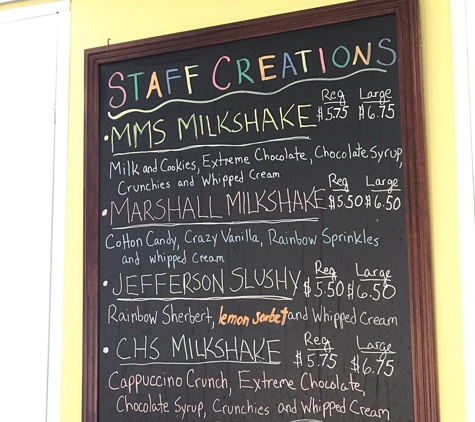 STAFF CREATIONS
Reg Large
• MMS MILKSHAKE $5.75 $6.75
Milk and Cookies, Extreme Chocolate, Chocolate Syrup,
Crunchies and Whipped Cream
Reg Large
• MARSHALL MILKSHAKE $5.50 $6.50
Cotton Candy, Crazy Vanilla, Rainbow Sprinkles
and whipped Cream
Reg Large
• JEFFERSON SLUSHY $5.50 $6.50
Rainbow Sherbert, lemon sorbet and Whipped Cream
Reg Large
• CHS MILKSHAKE $5.75 $6.75
Cappuccino Crunch, Extreme Chocolate,
Chocolate Syrup, Crunchies and Whipped Cream